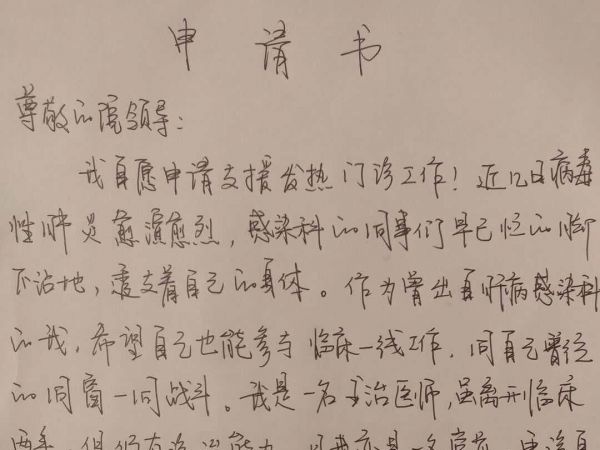 申请书
尊敬的院领导：
我自愿申请支援发热门诊工作！近几日病毒
性肺炎愈演愈烈，感染科的同事们早已忙的脚
不沾地，透支着自己的身体。作为曾出自肝病感染科
的我，希望自己也能参与临床一线工作，同自己曾经
的同窗一同战斗。我是一名主治医师，虽离开临床